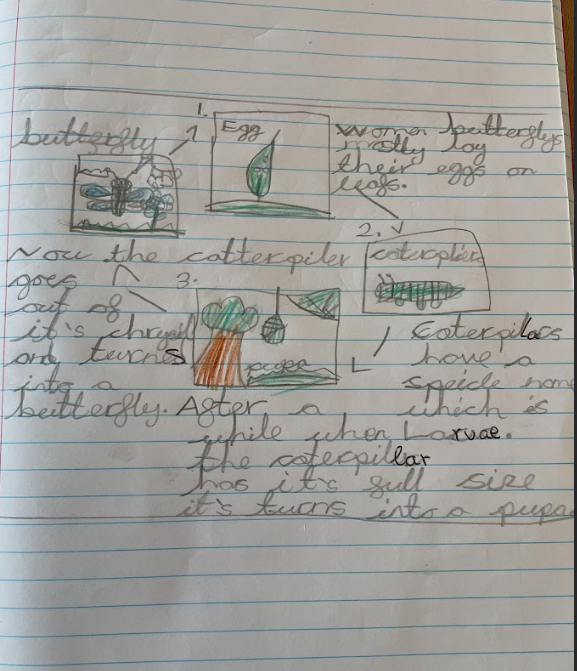 1.
Egg
Women butterflys
mostly lay
their eggs on
leafs.
2.
caterpiler
Caterpilars
have a
speicle name
which is
Larvae.
3.
pupa
After a
while when
the caterpillar
has it's full size
it's turns into a pupa
butterfly
Now the catterpiler
goes
out of
it's chrysil
and turns
into a
butterfly.